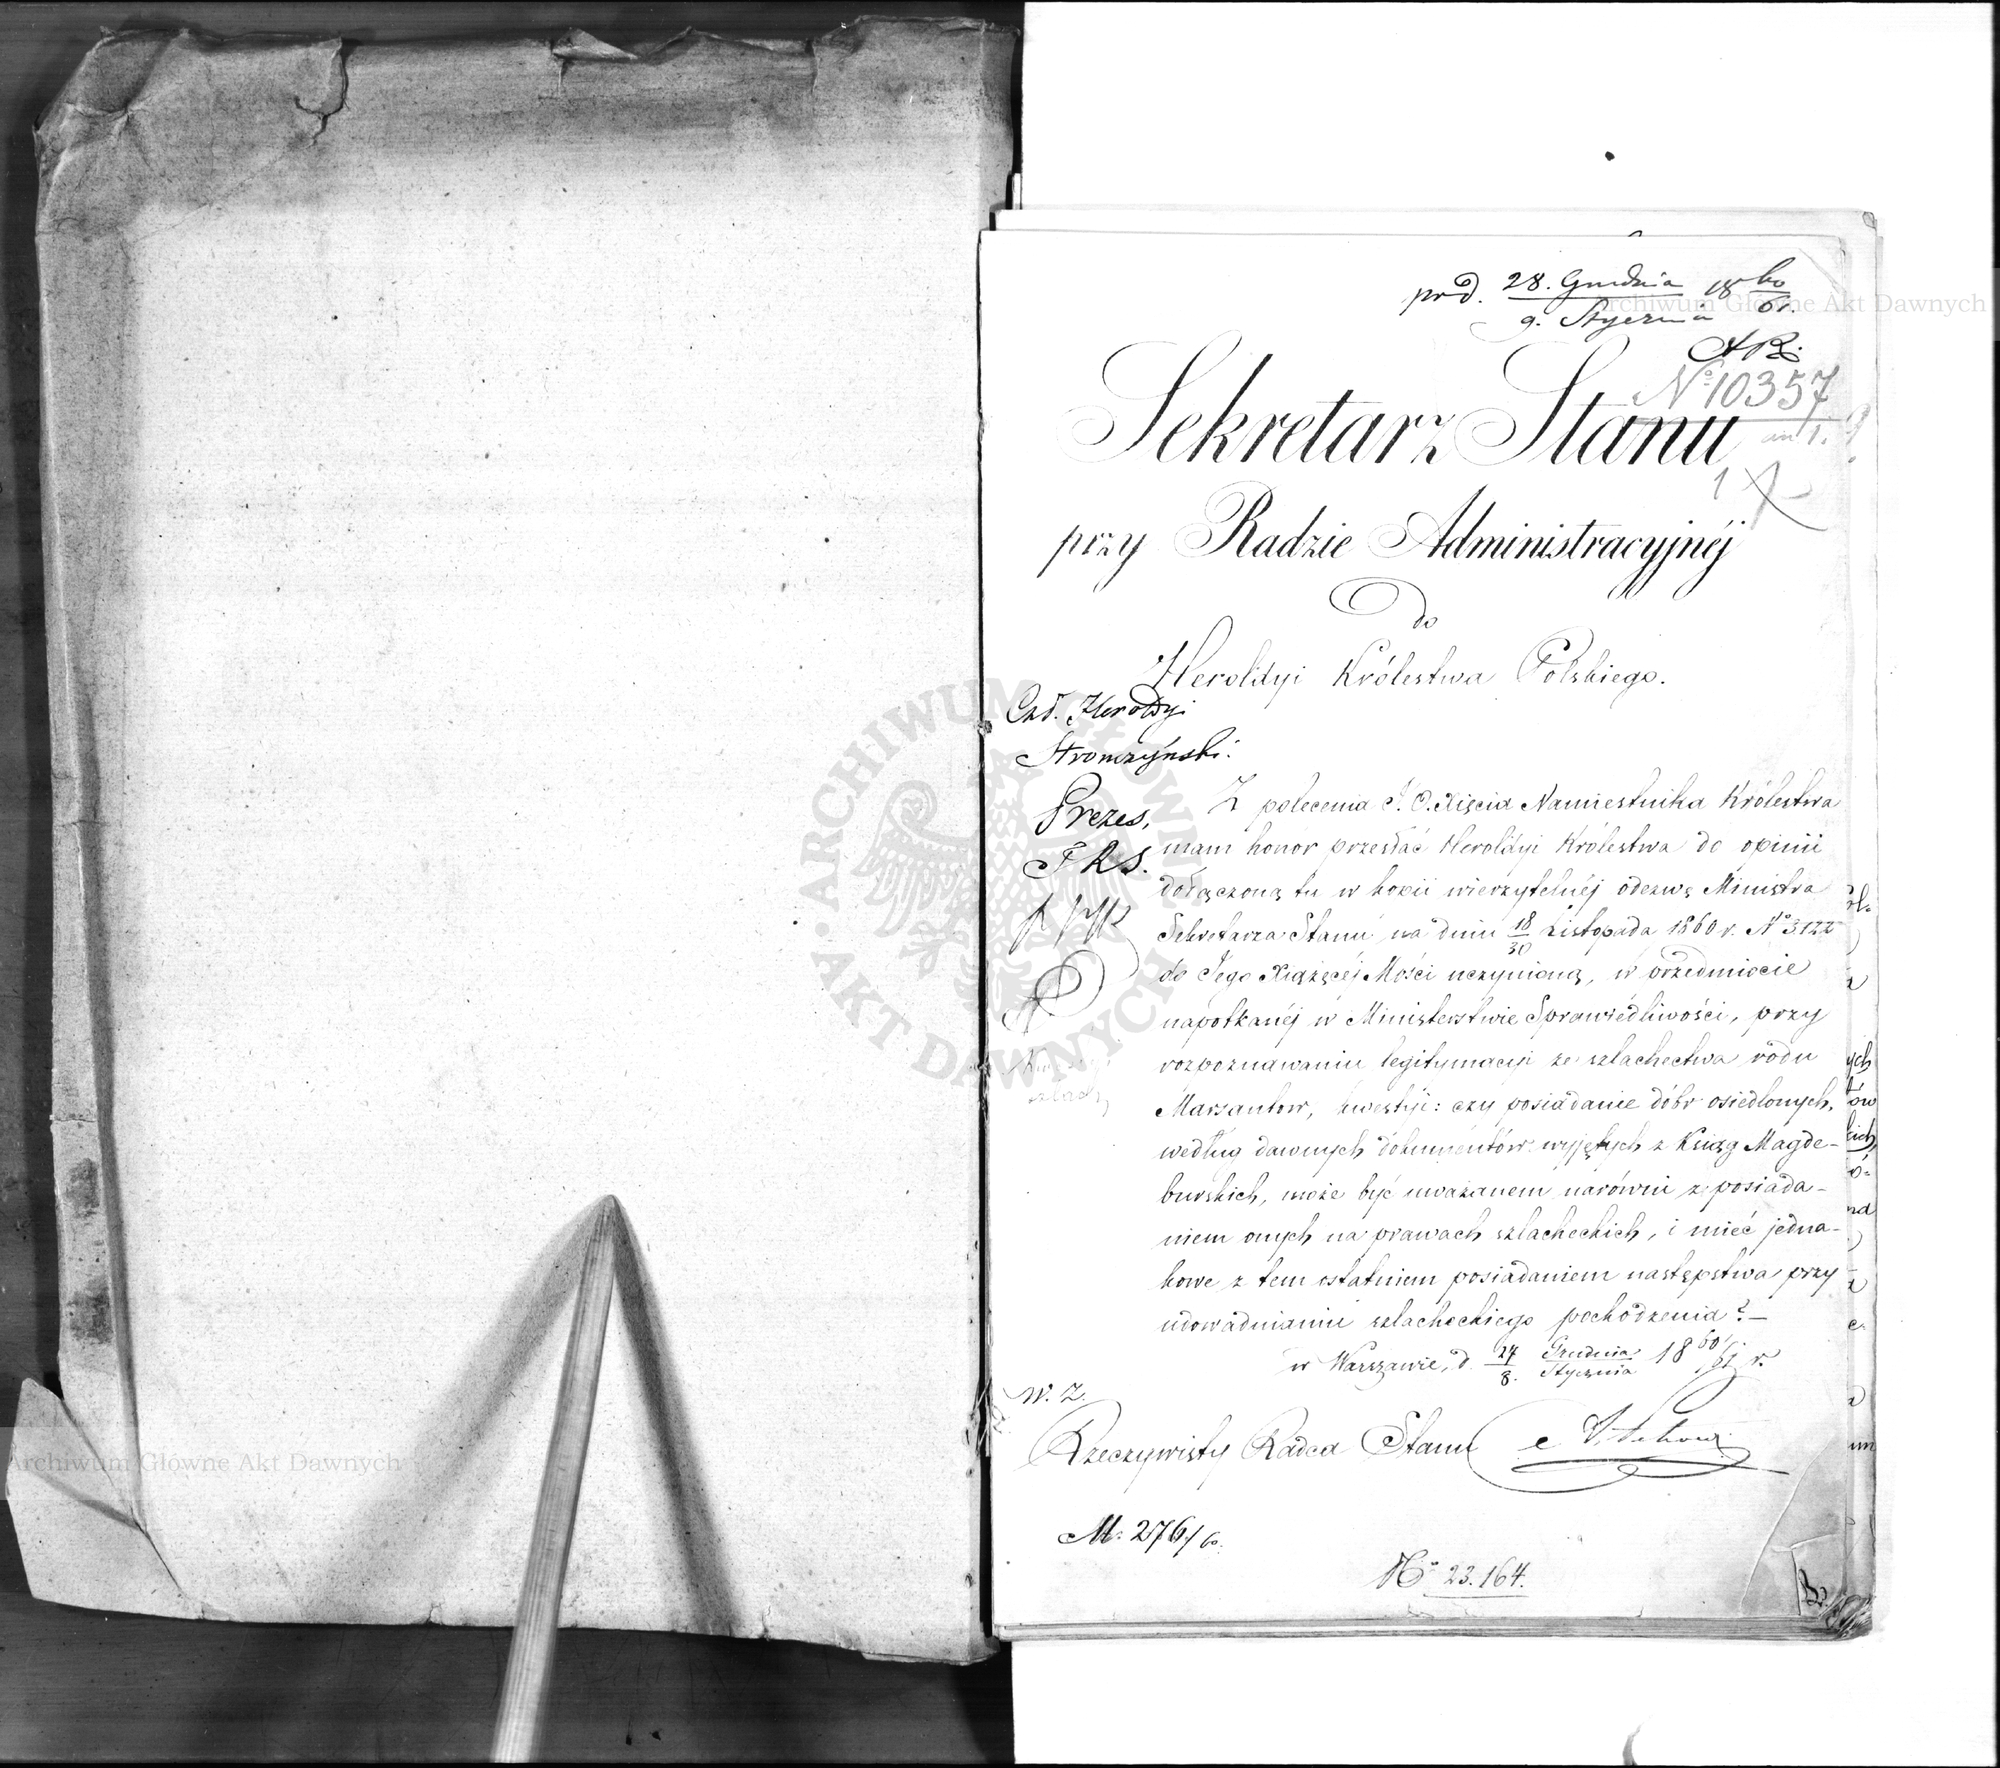 prd. 28. Grudnia 18 60
9. Stycznia 61.
No 10357
1
Sekretarz Stanu
przy Radzie Administracyjnéj
do
Heroldyi Królestwa Polskiego.
Czł. Heroldyi
Stronczyński.
Prezes,
Z polecenia J. O. Xięcia Namiestnika Królestwa
mam honor przesłać Heroldyi Królestwa do opinii
dołączoną tu w kopii wierzytelnéj odezwę Ministra
Sekretarza Stanu na dniu 18/30 Listopada 1860 r. No 3122
do Jego Xiążęcéj Mości uczynioną, w przedmiocie
napotkanéj w Ministerstwie Sprawiedliwości, przy
rozpoznawaniu legitymacyi ze szlachectwa rodu
Marzantow, kwestyi: czy posiadanie dóbr osiedlonych,
według dawnych dokumentów wyjętych z Ksiąg Magde-
burskich, może być uważanem narówni z posiada-
niem onych na prawach szlacheckich, i mieć jedna-
kowe z tem ostatniem posiadaniem następstwa przy
udowadnianiu szlacheckiego pochodzenia? —
w Warszawie, d. 27/8. Grudnia/Stycznia 18 60/61 r.
W. Z.
Rzeczywisty Radca Stanu
M. 276/60.
No 23.164.
ARCHIWUM GŁÓWNE
AKT DAWNYCH
Archiwum Główne Akt Dawnych
Archiwum Główne Akt Dawnych